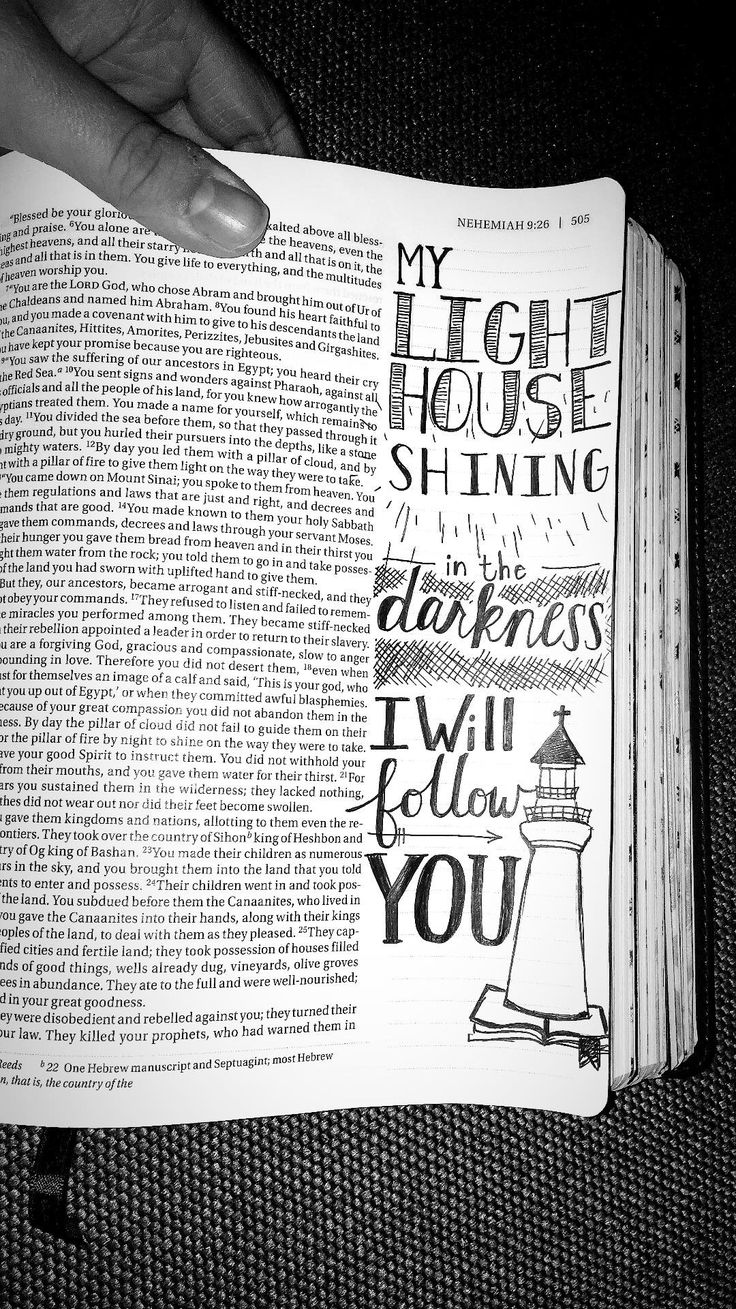 NEHEMIAH 9:26 | 505
"Blessed be your glorio
ing and praise. 6You alone are xalted above all bless-
ighest heavens, and all their starry the heavens, even the
eas and all that is in them. You give life to everything, and the multitudes
f heaven worship you.
7"You are the LORD God, who chose Abram and brought him out of Ur of
e Chaldeans and named him Abraham. 8You found his heart faithful to
u, and you made a covenant with him to give to his descendants the land
the Canaanites, Hittites, Amorites, Perizzites, Jebusites and Girgashites.
u have kept your promise because you are righteous.
9"You saw the suffering of our ancestors in Egypt; you heard their cry
the Red Sea.a 10You sent signs and wonders against Pharaoh, against all
officials and all the people of his land, for you knew how arrogantly the
yptians treated them. You made a name for yourself, which remains to
s day. 11You divided the sea before them, so that they passed through it
dry ground, but you hurled their pursuers into the depths, like a stone
o mighty waters. 12By day you led them with a pillar of cloud, and by
ht with a pillar of fire to give them light on the way they were to take.
"You came down on Mount Sinai; you spoke to them from heaven. You
e them regulations and laws that are just and right, and decrees and
mands that are good. 14You made known to them your holy Sabbath
gave them commands, decrees and laws through your servant Moses.
their hunger you gave them bread from heaven and in their thirst you
ght them water from the rock; you told them to go in and take posses-
of the land you had sworn with uplifted hand to give them.
But they, our ancestors, became arrogant and stiff-necked, and they
ot obey your commands. 17They refused to listen and failed to remem-
e miracles you performed among them. They became stiff-necked
their rebellion appointed a leader in order to return to their slavery.
u are a forgiving God, gracious and compassionate, slow to anger
bounding in love. Therefore you did not desert them, 18even when
st for themselves an image of a calf and said, 'This is your god, who
t you up out of Egypt,' or when they committed awful blasphemies.
ecause of your great compassion you did not abandon them in the
ness. By day the pillar of cloud did not fail to guide them on their
or the pillar of fire by night to shine on the way they were to take.
ave your good Spirit to instruct them. You did not withhold your
from their mouths, and you gave them water for their thirst. 21For
ars you sustained them in the wilderness; they lacked nothing,
thes did not wear out nor did their feet become swollen.
u gave them kingdoms and nations, allotting to them even the re-
ontiers. They took over the country of Sihonb king of Heshbon and
try of Og king of Bashan. 23You made their children as numerous
rs in the sky, and you brought them into the land that you told
ents to enter and possess. 24Their children went in and took pos-
the land. You subdued before them the Canaanites, who lived in
you gave the Canaanites into their hands, along with their kings
eoples of the land, to deal with them as they pleased. 25They cap-
fied cities and fertile land; they took possession of houses filled
nds of good things, wells already dug, vineyards, olive groves
ees in abundance. They ate to the full and were well-nourished;
d in your great goodness.
ey were disobedient and rebelled against you; they turned their
our law. They killed your prophets, who had warned them in
Reeds b 22 One Hebrew manuscript and Septuagint; most Hebrew
n, that is, the country of the
MY
LIGHT
HOUSE
SHINING
in the
darkness
I Will
follow
YOU